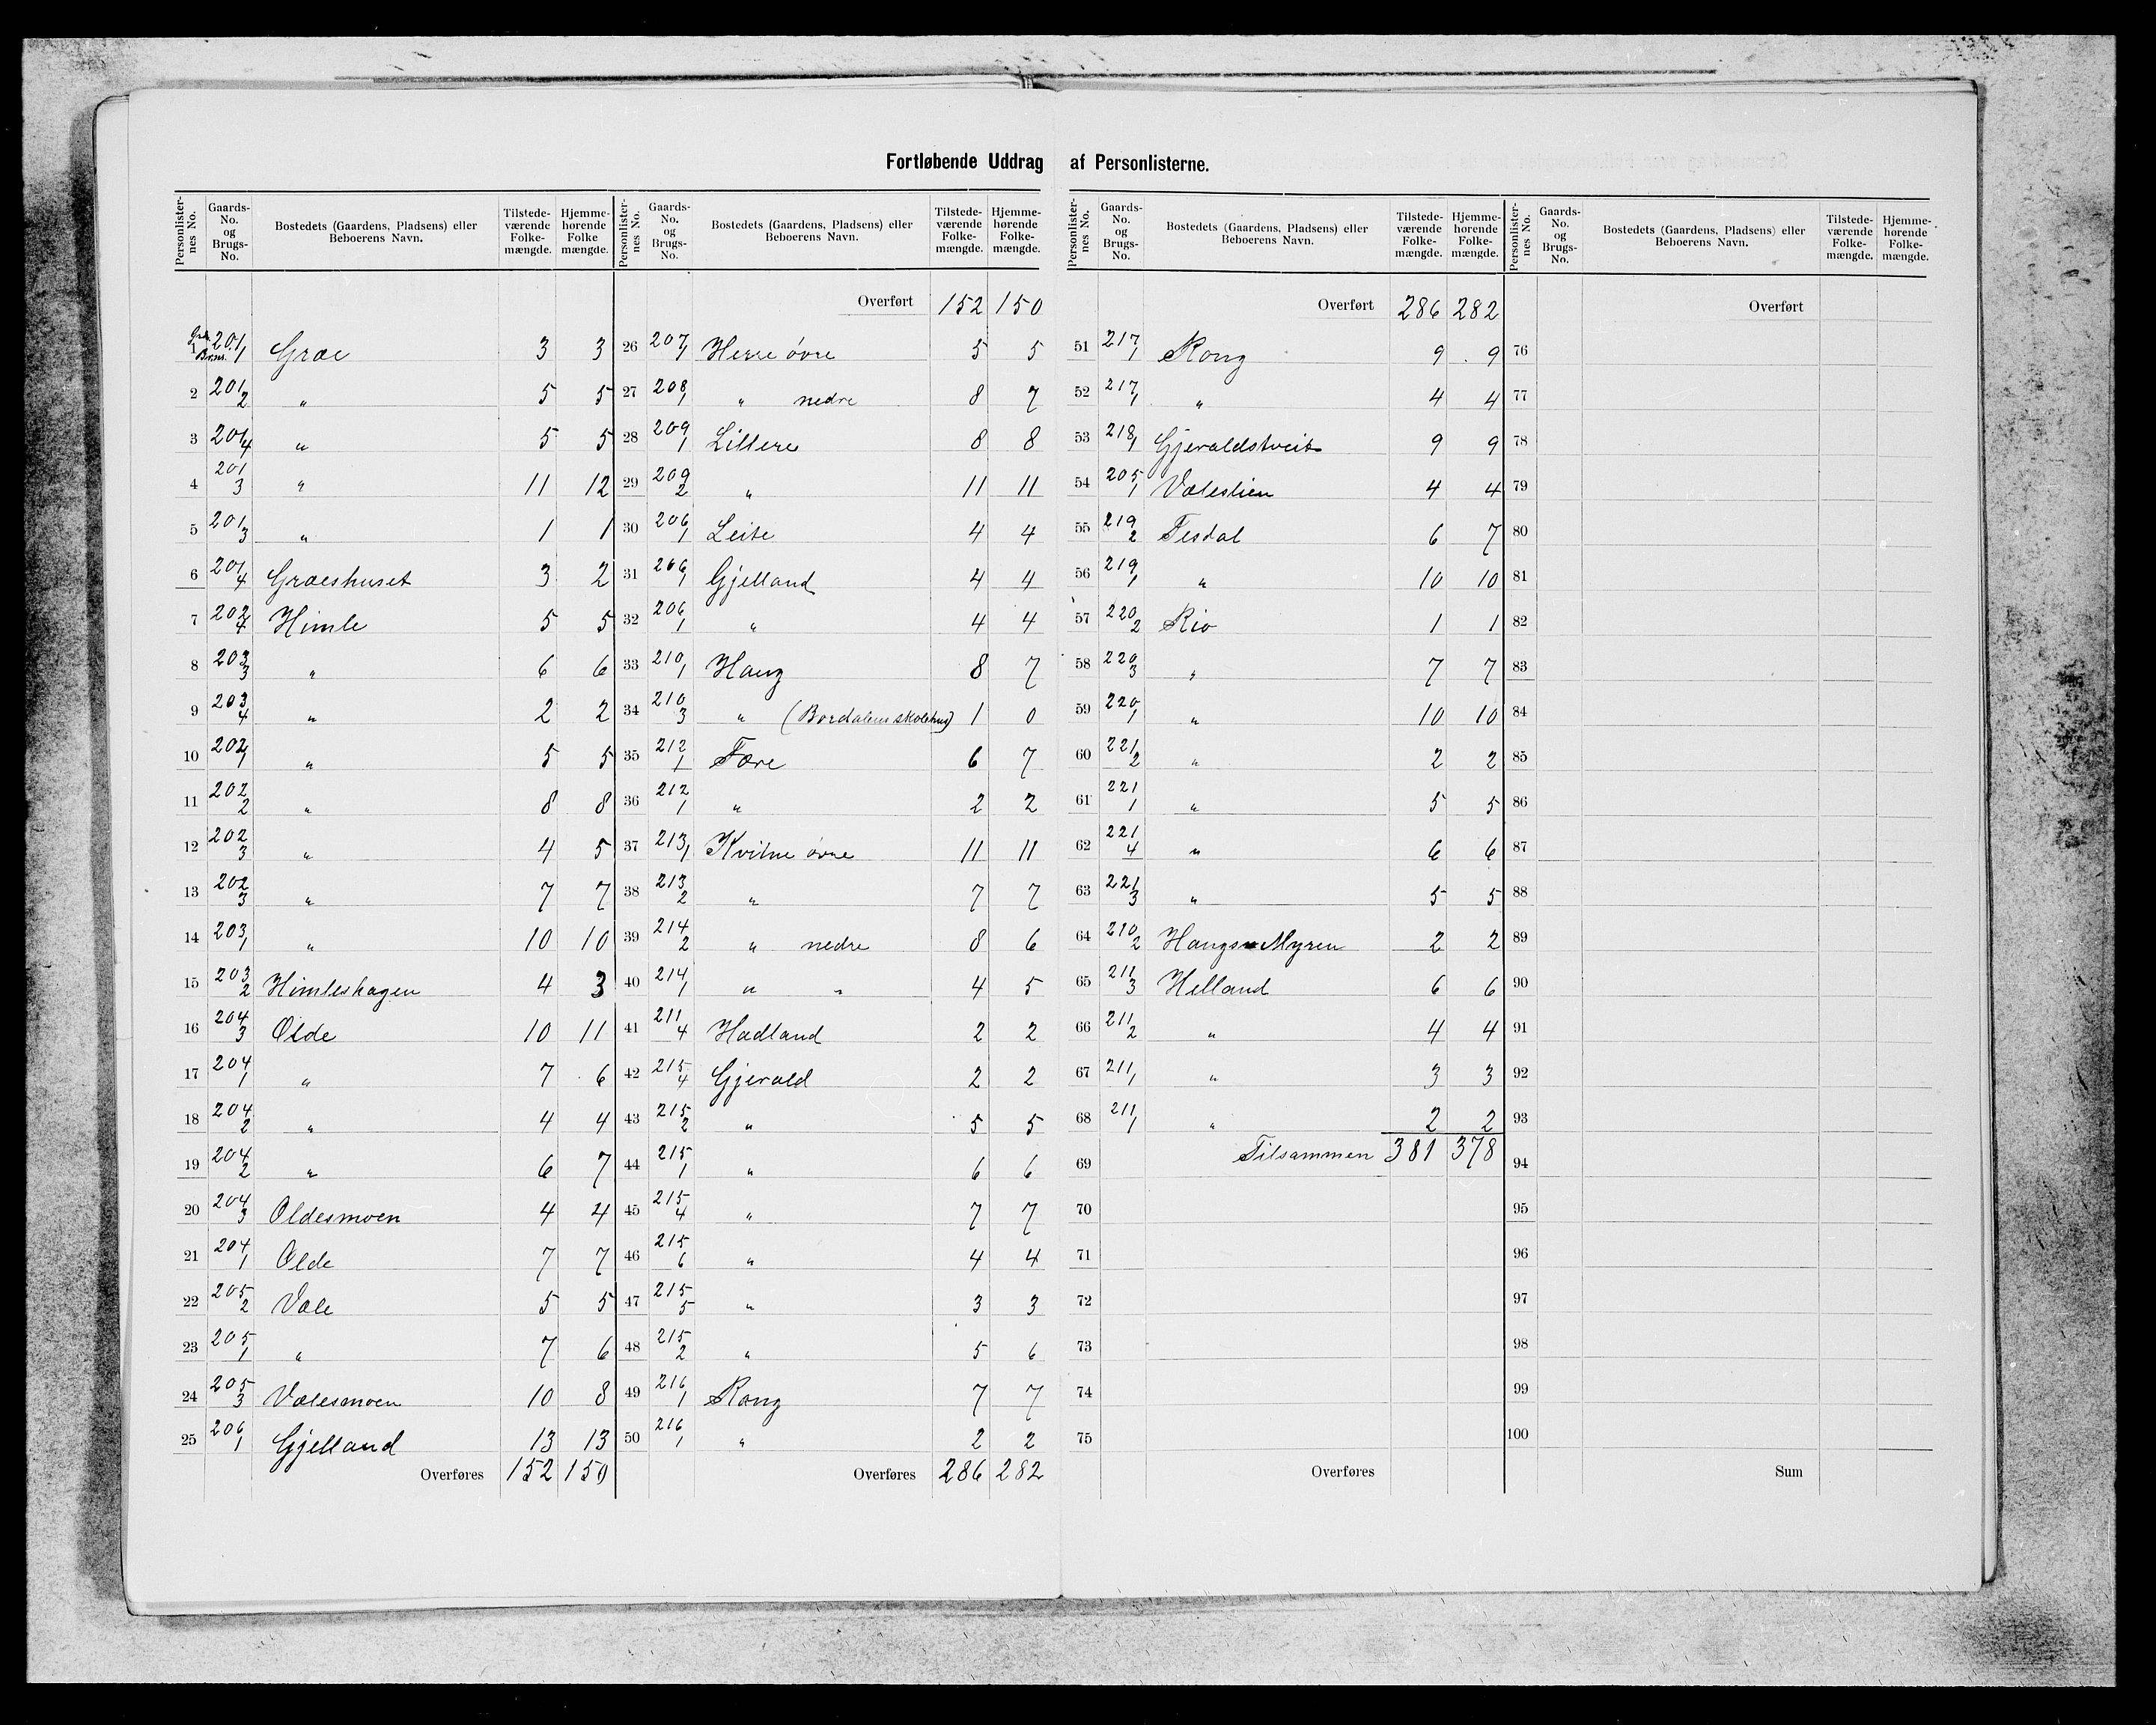 Fortløbende Uddrag af Personlisterne.
Personlister-nes No. | Gaards-No. og Brugs-No. | Bostedets (Gaardens, Pladsens) eller Beboerens Navn. | Tilstede-værende Folke-mængde. | Hjemme-hørende Folke mængde.
1 Grdn. Brns. 201/1 Græe 3 3
2 201/2 " 5 5
3 201/4 " 5 5
4 201/3 " 11 12
5 201/3 " 1 1
6 201/4 Græeshuset 3 2
7 202/4 Himle 5 5
8 203/3 " 6 6
9 203/4 " 2 2
10 202/1 " 5 5
11 202/2 " 8 8
12 202/3 " 4 5
13 202/3 " 7 7
14 203/1 " 10 10
15 203/2 Himleshagen 4 3
16 204/3 Olde 10 11
17 204/1 " 7 6
18 204/2 " 4 4
19 204/2 " 6 7
20 204/3 Oldesmoen 4 4
21 204/1 Olde 7 7
22 205/2 Væle 5 5
23 205/1 " 7 6
24 205/3 Vælesmoen 10 8
25 206/1 Gjelland 13 13
Overføres 152 150
Personlister-nes No. | Gaards-No. og Brugs-No. | Bostedets (Gaardens, Pladsens) eller Beboerens Navn. | Tilstede-værende Folke-mængde. | Hjemme-hørende Folke-mængde.
Overført 152 150
26 207/1 Herre øvre 5 5
27 208/1 " nedre 8 7
28 209/1 Lillere 8 8
29 209/2 " 11 11
30 206/1 Leite 4 4
31 206/1 Gjelland 4 4
32 206/1 " 4 4
33 210/1 Haug 8 7
34 210/3 " (Bordalens skolehus) 1 0
35 212/1 Fære 6 7
36 212/1 " 2 2
37 213/1 Kvitne øvre 11 11
38 213/2 " 7 7
39 214/2 " nedre 8 6
40 214/1 " " 4 5
41 211/4 Hadland 2 2
42 215/4 Gjerald 2 2
43 215/2 " 5 5
44 215/1 " 6 6
45 215/4 " 7 7
46 215/6 " 4 4
47 215/5 " 3 3
48 215/2 " 5 6
49 216/1 Rong 7 7
50 216/1 " 2 2
Overføres 286 282
Personlister-nes No. | Gaards-No. og Brugs-No. | Bostedets (Gaardens, Pladsens) eller Beboerens Navn. | Tilstede-værende Folke-mængde. | Hjemme-hørende Folke-mængde.
Overført 286 282
51 217/1 Rong 9 9
52 217/1 " 4 4
53 218/1 Gjeraldstveit 9 9
54 205/1 Væleslien 4 4
55 219/2 Tesdal 6 7
56 219/1 " 10 10
57 220/2 Rio 1 1
58 220/3 " 7 7
59 220/1 " 10 10
60 221/2 " 2 2
61 221/1 " 5 5
62 221/4 " 6 6
63 221/3 " 5 5
64 210/2 Haugs Myren 2 2
65 211/3 Helland 6 6
66 211/2 " 4 4
67 211/1 " 3 3
68 211/1 " 2 2
69 Tilsammen 381 378
70
71
72
73
74
75
Overføres
Personlister-nes No. | Gaards-No. og Brugs-No. | Bostedets (Gaardens, Pladsens) eller Beboerens Navn. | Tilstede-værende Folke-mængde. | Hjemme-hørende Folke-mængde.
Overført
76
77
78
79
80
81
82
83
84
85
86
87
88
89
90
91
92
93
94
95
96
97
98
99
100
Sum